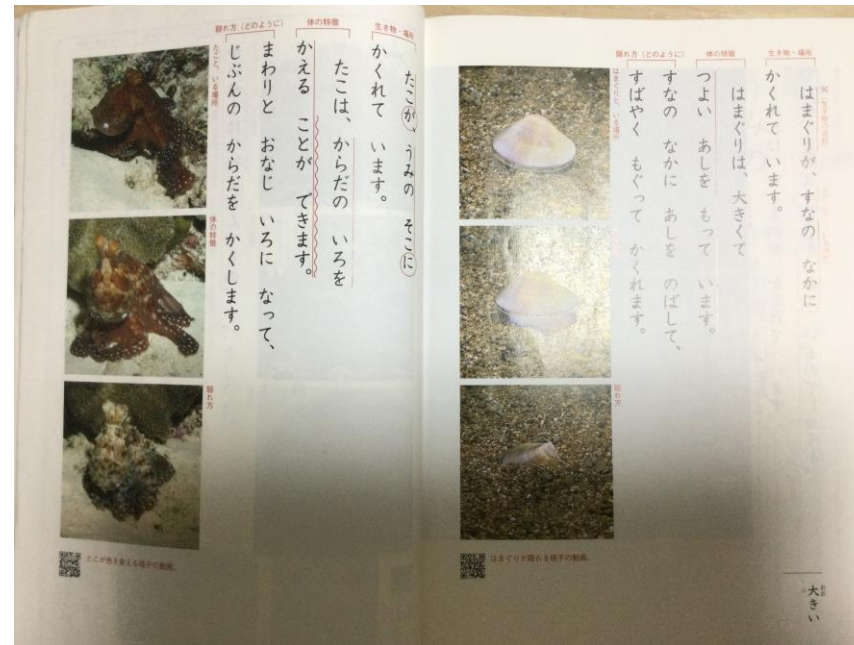 生き物・場所
はまぐりが、すなの なかに
かくれて います。
体の特徴
はまぐりは、大きくて
つよい あしを もって います。
隠れ方（どのように）
すなの なかに あしを のばして、
すばやく もぐって かくれます。
はまぐりと、いる場所
隠れ方
はまぐりが隠れる様子の動画。
おお
大きい
生き物・場所
たこが、うみの そこに
かくれて います。
体の特徴
たこは、からだの いろを
かえる ことが できます。
隠れ方（どのように）
まわりと おなじ いろに なって、
じぶんの からだを かくします。
たこと、いる場所
体の特徴
隠れ方
たこが色を変える様子の動画。